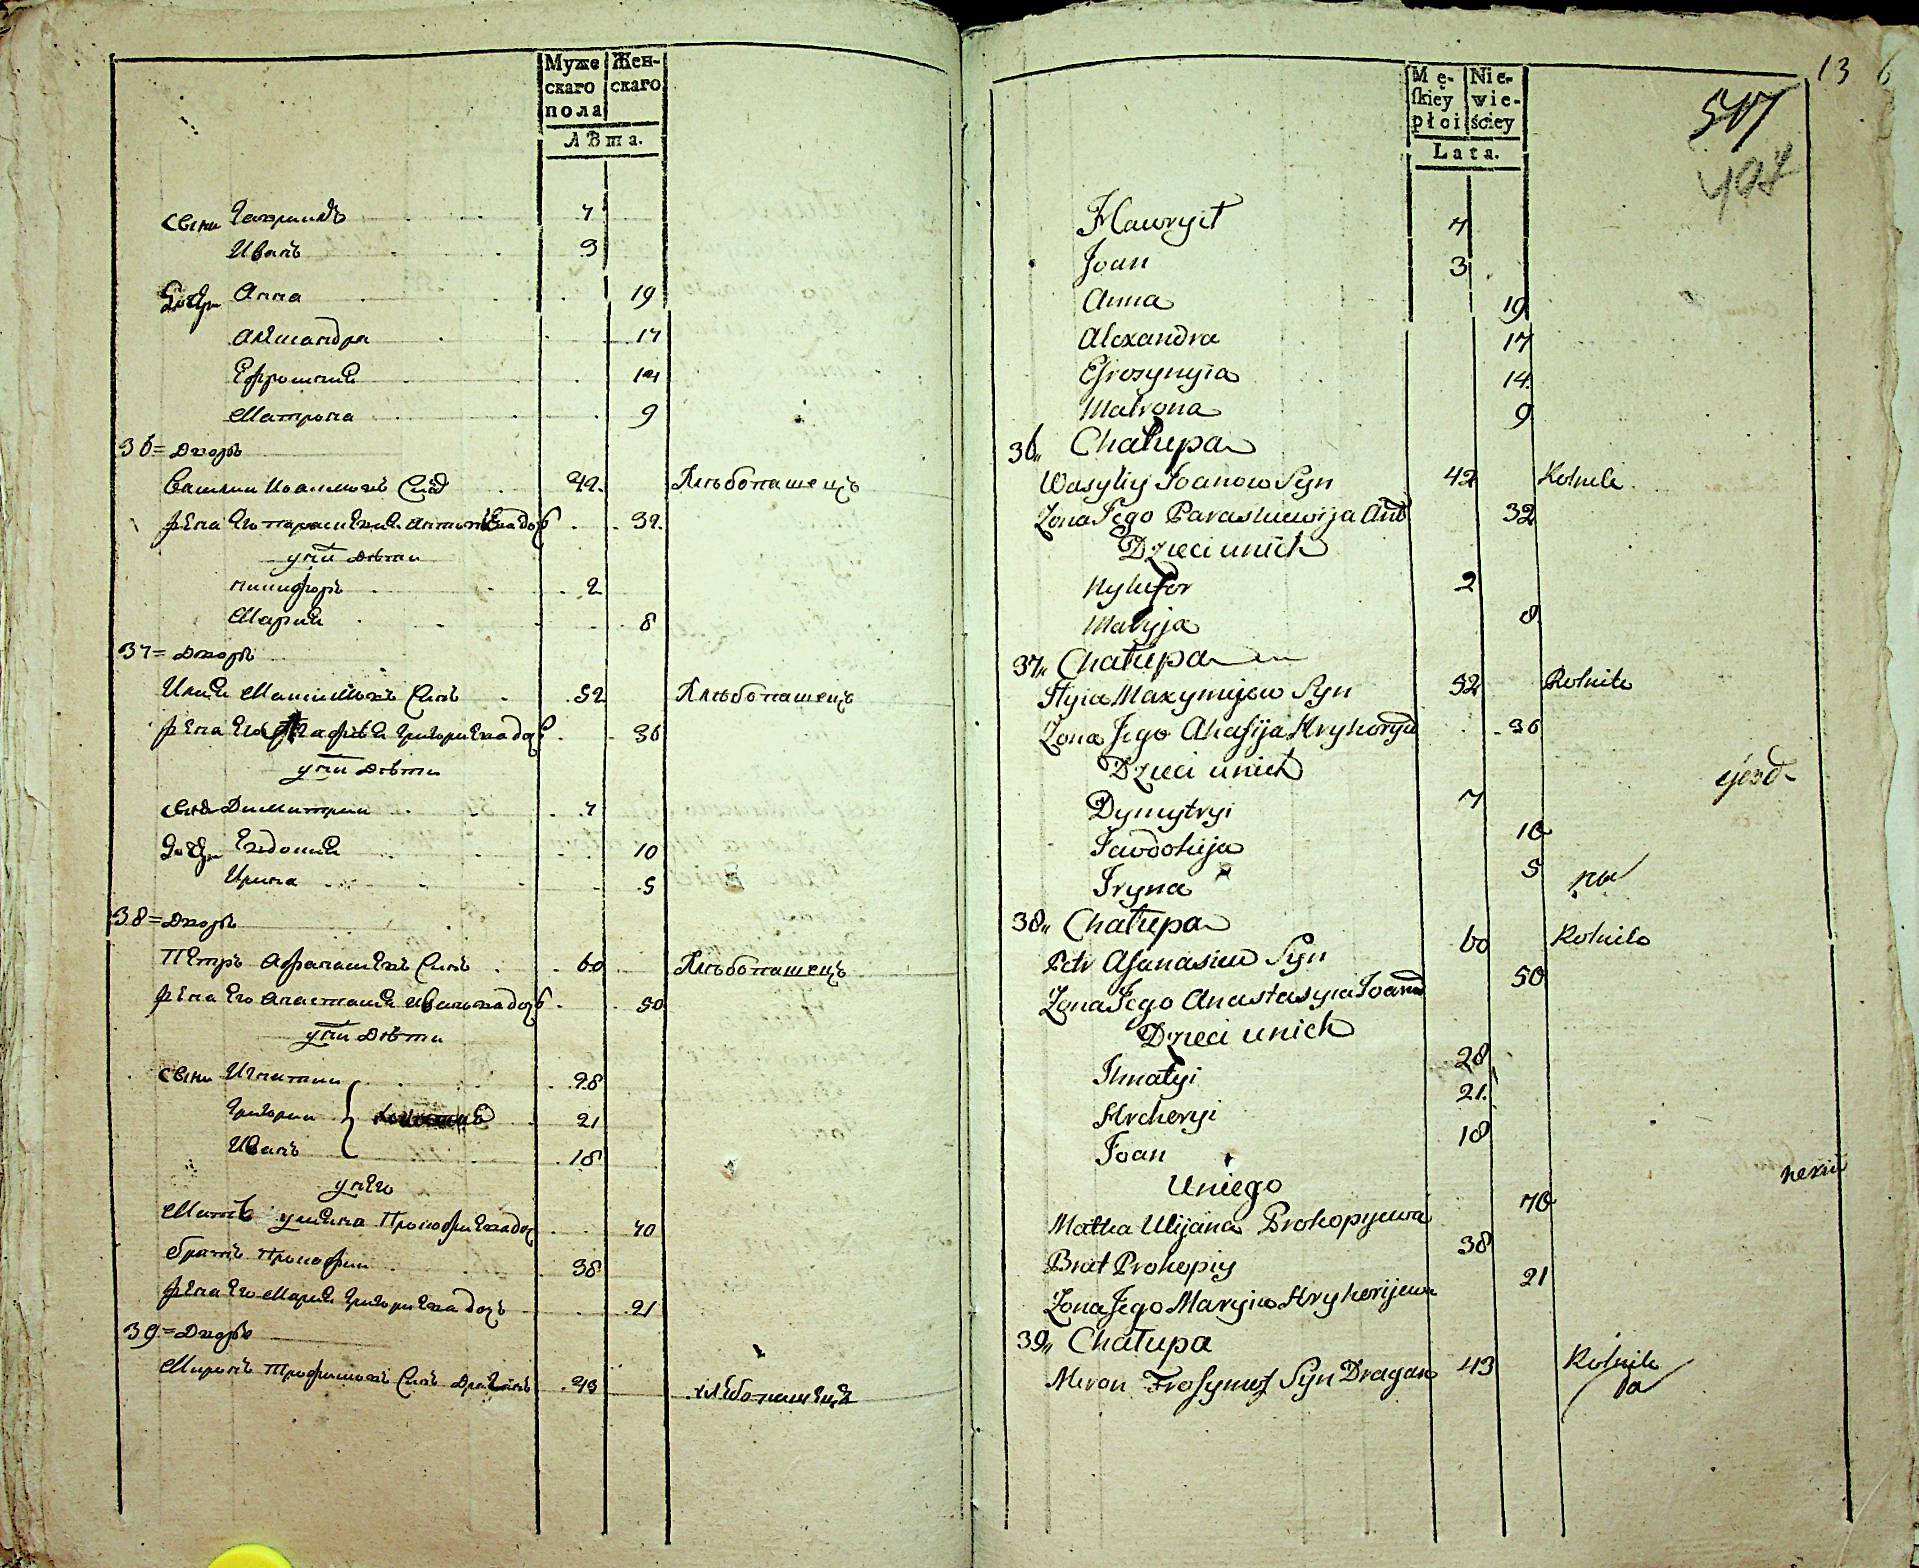 Муже
скаго
пола
Жен-
скаго
лѣта.
сыни Гавриилъ 7
Иванъ 3
Дочери Анна 19
Александра 17
Ефросиния 14
Матрона 9
36 = Дворъ
Василий Иоанновъ Синъ 42 Хлѣбопашецъ
Жена Его Параскевия 32
у них дѣти
Никифоръ 2
Мария 8
37 = Дворъ
Илия Максимовъ Синъ 52 Хлѣбопашецъ
Жена Его Агафия Григориева дочь 36
у них дѣти
Синъ Димитрии 7
Дочери Евдокия 10
Ирина 5
38 = Дворъ
Петръ Афанасиевъ Синъ 60 Хлѣбопашецъ
Жена Его Анастасия Иванова дочь 50
у них дѣти
сыни Игнатии 28
Григории 21
Иванъ 18
у него
Мать Улияна Прокофиева дочь 70
братъ Прокофии 38
Жена Его Мария Григориева дочь 21
39 = Дворъ
Миронъ Трофимовъ Синъ Драганъ 43 хлѣбопашецъ
13
Mę-
ſkiey
płci
Nie-
wie-
ściey
Lata.
517
Hawryił 7
Joan 3
Anna 19
Alexandra 17
Efrosynyia 14
Matrona 9
36„ Chałupa
Wasyliy Joanow Syn 42 Rolnik
Zona Jego Paraskiewija Ant 32
Dzieci u nich
Nykifor 2
Maryja 8
37„ Chałupa
Ilyia Maxymijew Syn 52 Rolnik
Zona Jego Ahafija Hryhoryi 36
Dzieci u nich
Dymytryi 7
Jawdokija 10
Iryna 5
38„ Chałupa
Petr Afanasiew Syn 60 Rolnik
Zona Jego Anastasyia Joano 50
Dzieci u nich
Ihnatyi 28
Hrehoryi 21
Joan 18
U niego
Matka Ulijana Prokopyewa 70
Brat Prokopiy 38
Zona Jego Maryia Hryhorijewa 21
39„ Chałupa
Miron Trofymof Syn Dragan 43 Rolnik